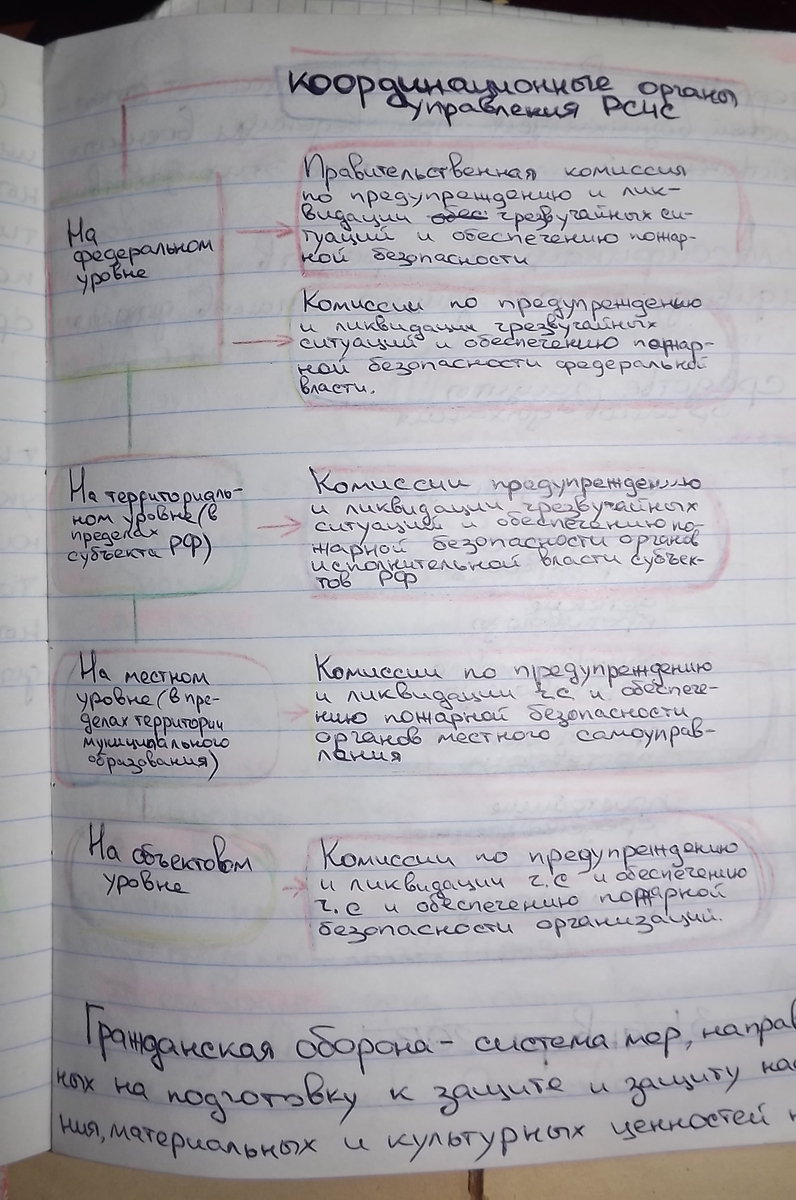 Координационные органы
управления РСЧС
На
федеральном
уровне
Правительственная комиссия
по предупреждению и лик-
видации чрезвучайных си-
туаций и обеспечению пожар-
ной безопасности
Комиссии по предупреждению
и ликвидации чрезвучайных
ситуаций и обеспечению пожар-
ной безопасности федеральной
власти.
На территориаль-
ном уровне (в
пределах
субъекта РФ)
Комиссии предупреждению
и ликвидации чрезвучайных
ситуаций и обеспечению по-
жарной безопасности органов
исполнительной власти субъек-
тов РФ
На местном
уровне (в пре-
делах территории
муниципального
образования)
Комиссии по предупреждению
и ликвидации ч.с и обеспече-
нию пожарной безопасности
органов местного самоуправ-
ления
На объектовом
уровне
Комиссии по предупреждению
и ликвидации ч.с и обеспечению
ч.с и обеспечению пожарной
безопасности организаций.
Гражданская оборона - система мер, направ
ных на подготовку к защите и защиту нас
ния, материальных и культурных ценностей н